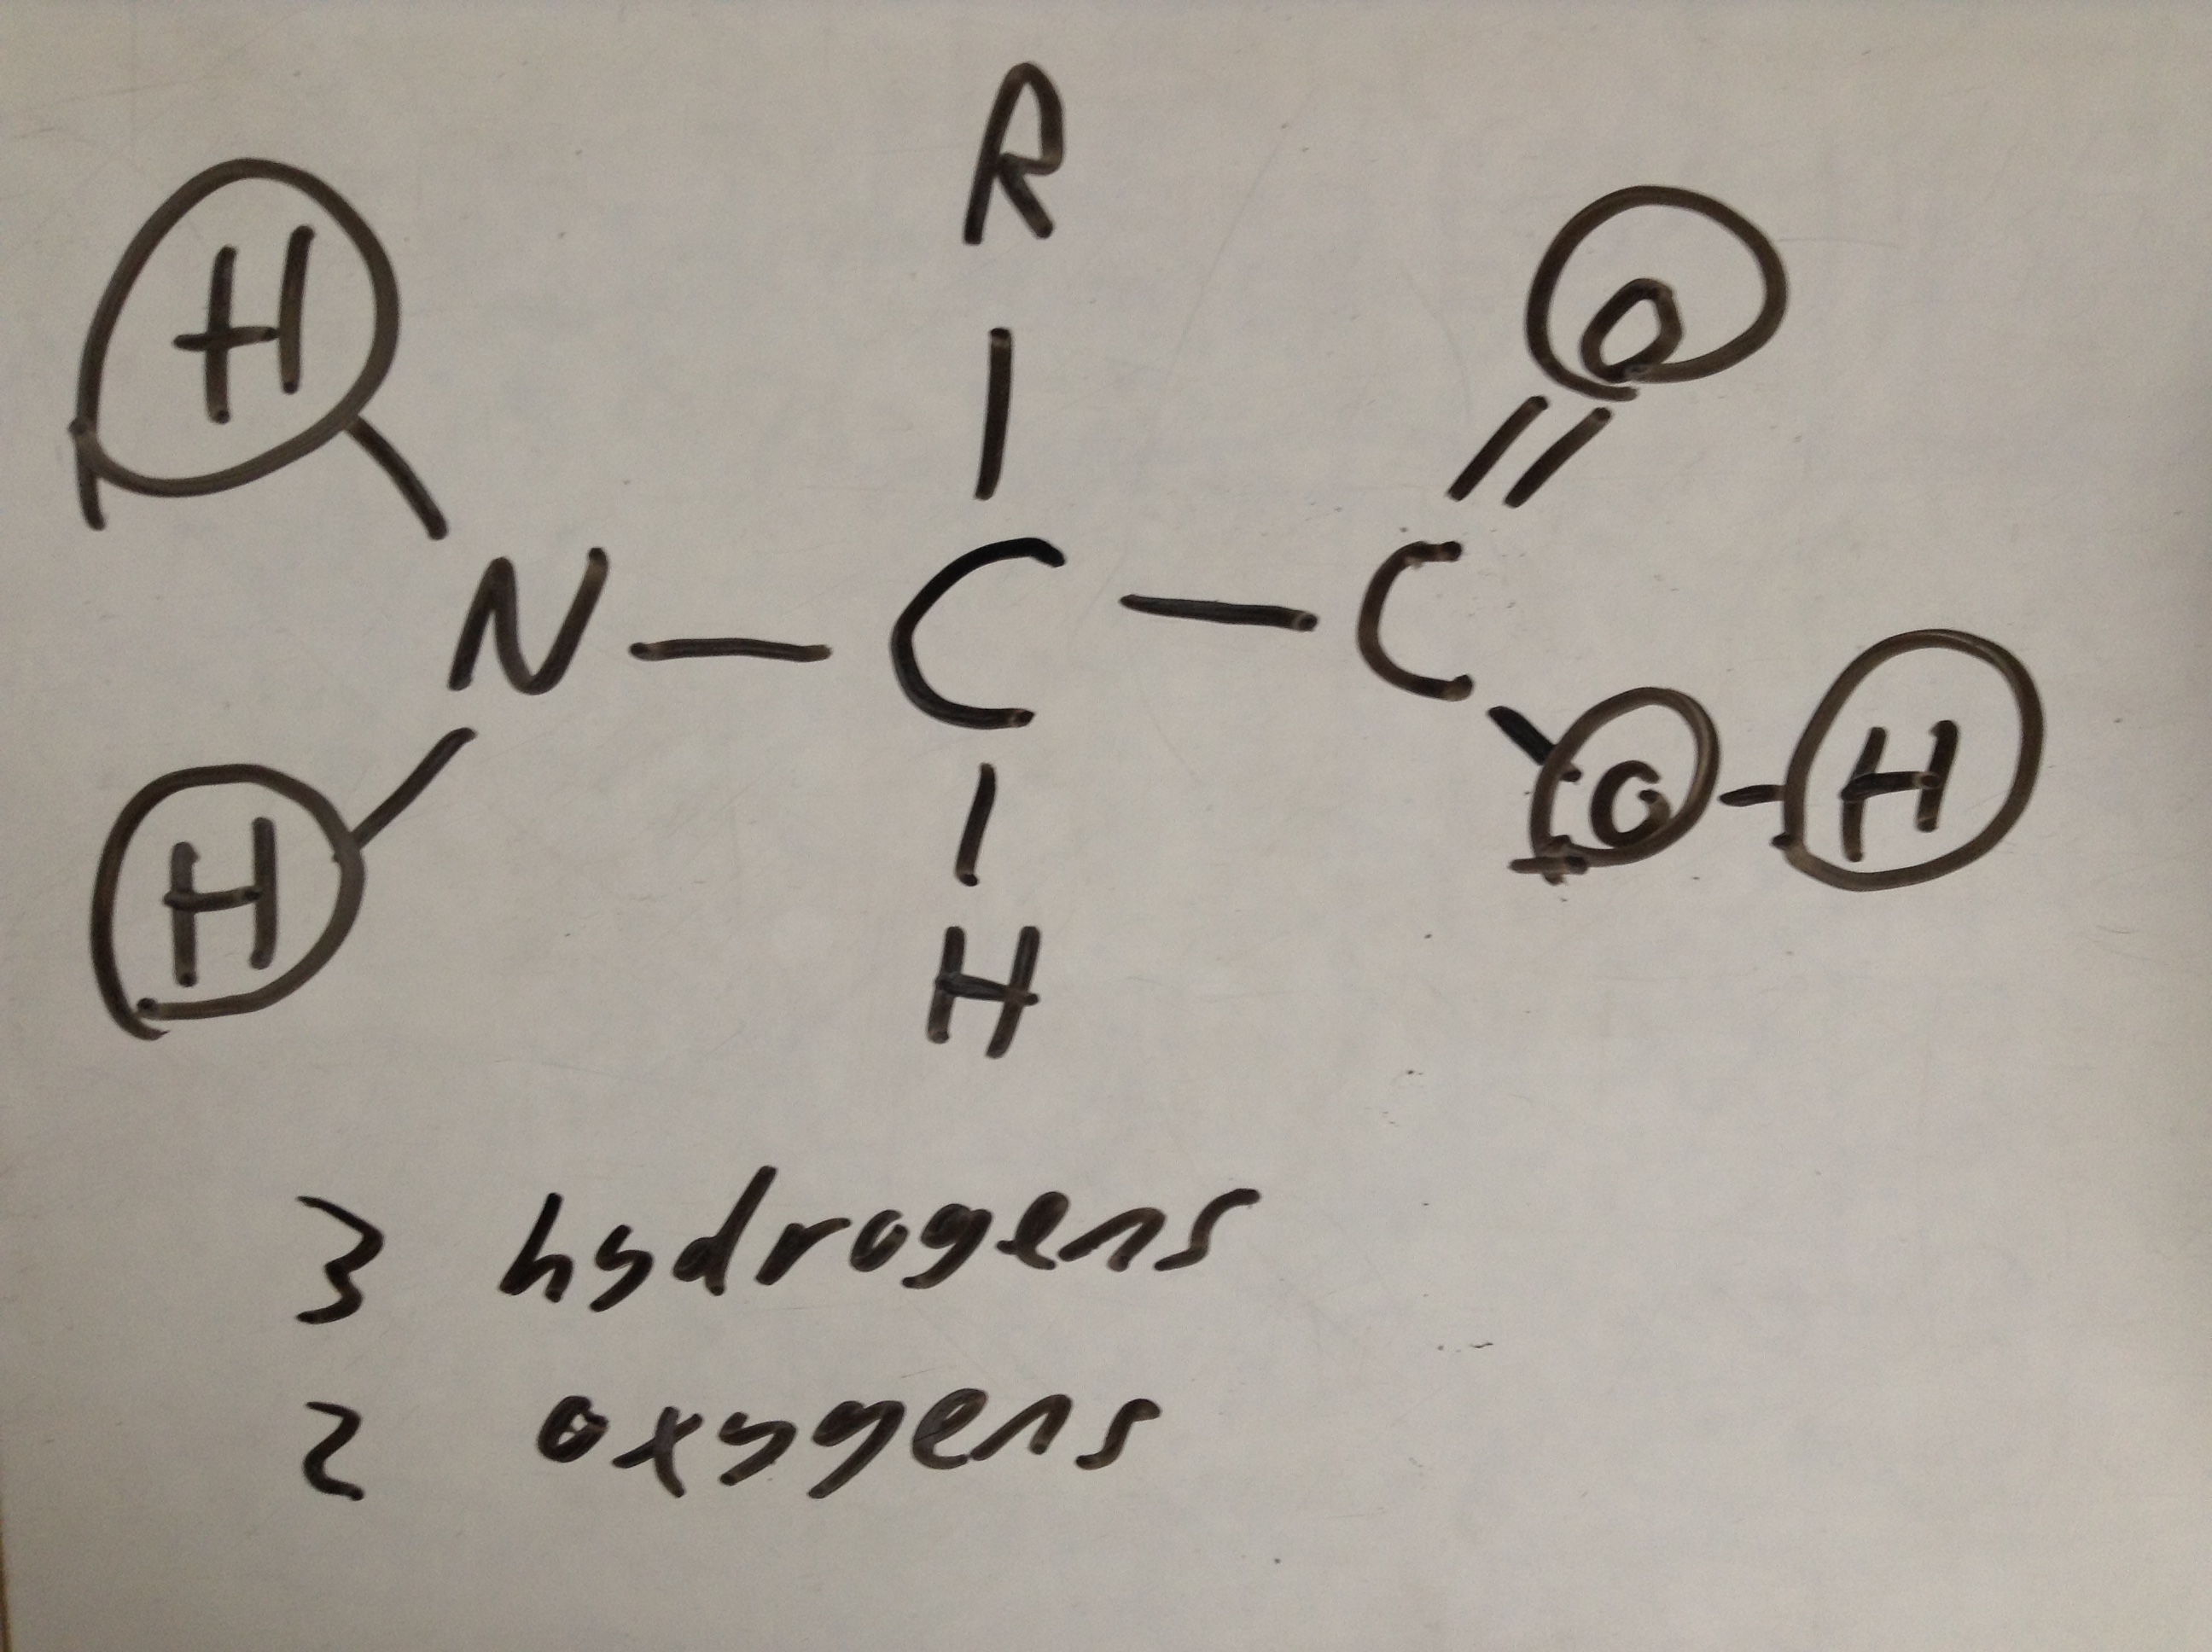 R
H
O
N - C - C
H
H
O - H
3 hydrogens
2 oxygens